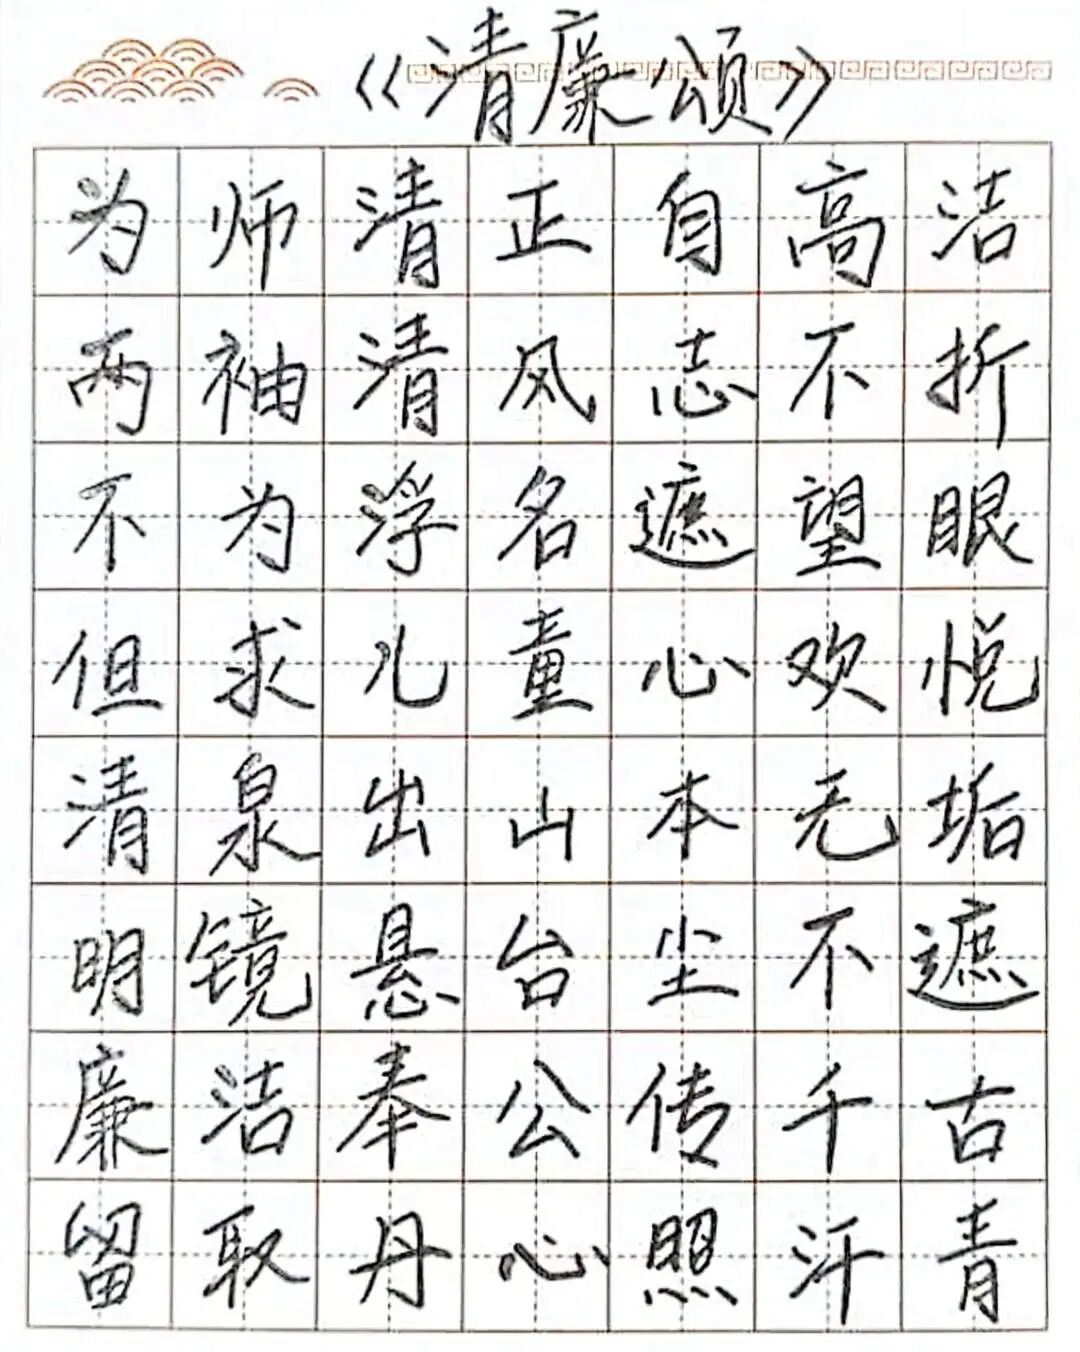 《清廉颂》
为师清正自高洁
两袖清风志不折
不为浮名遮望眼
但求儿童心欢悦
清泉出山本无垢
明镜悬台尘不遮
廉洁奉公传千古
留取丹心照汗青